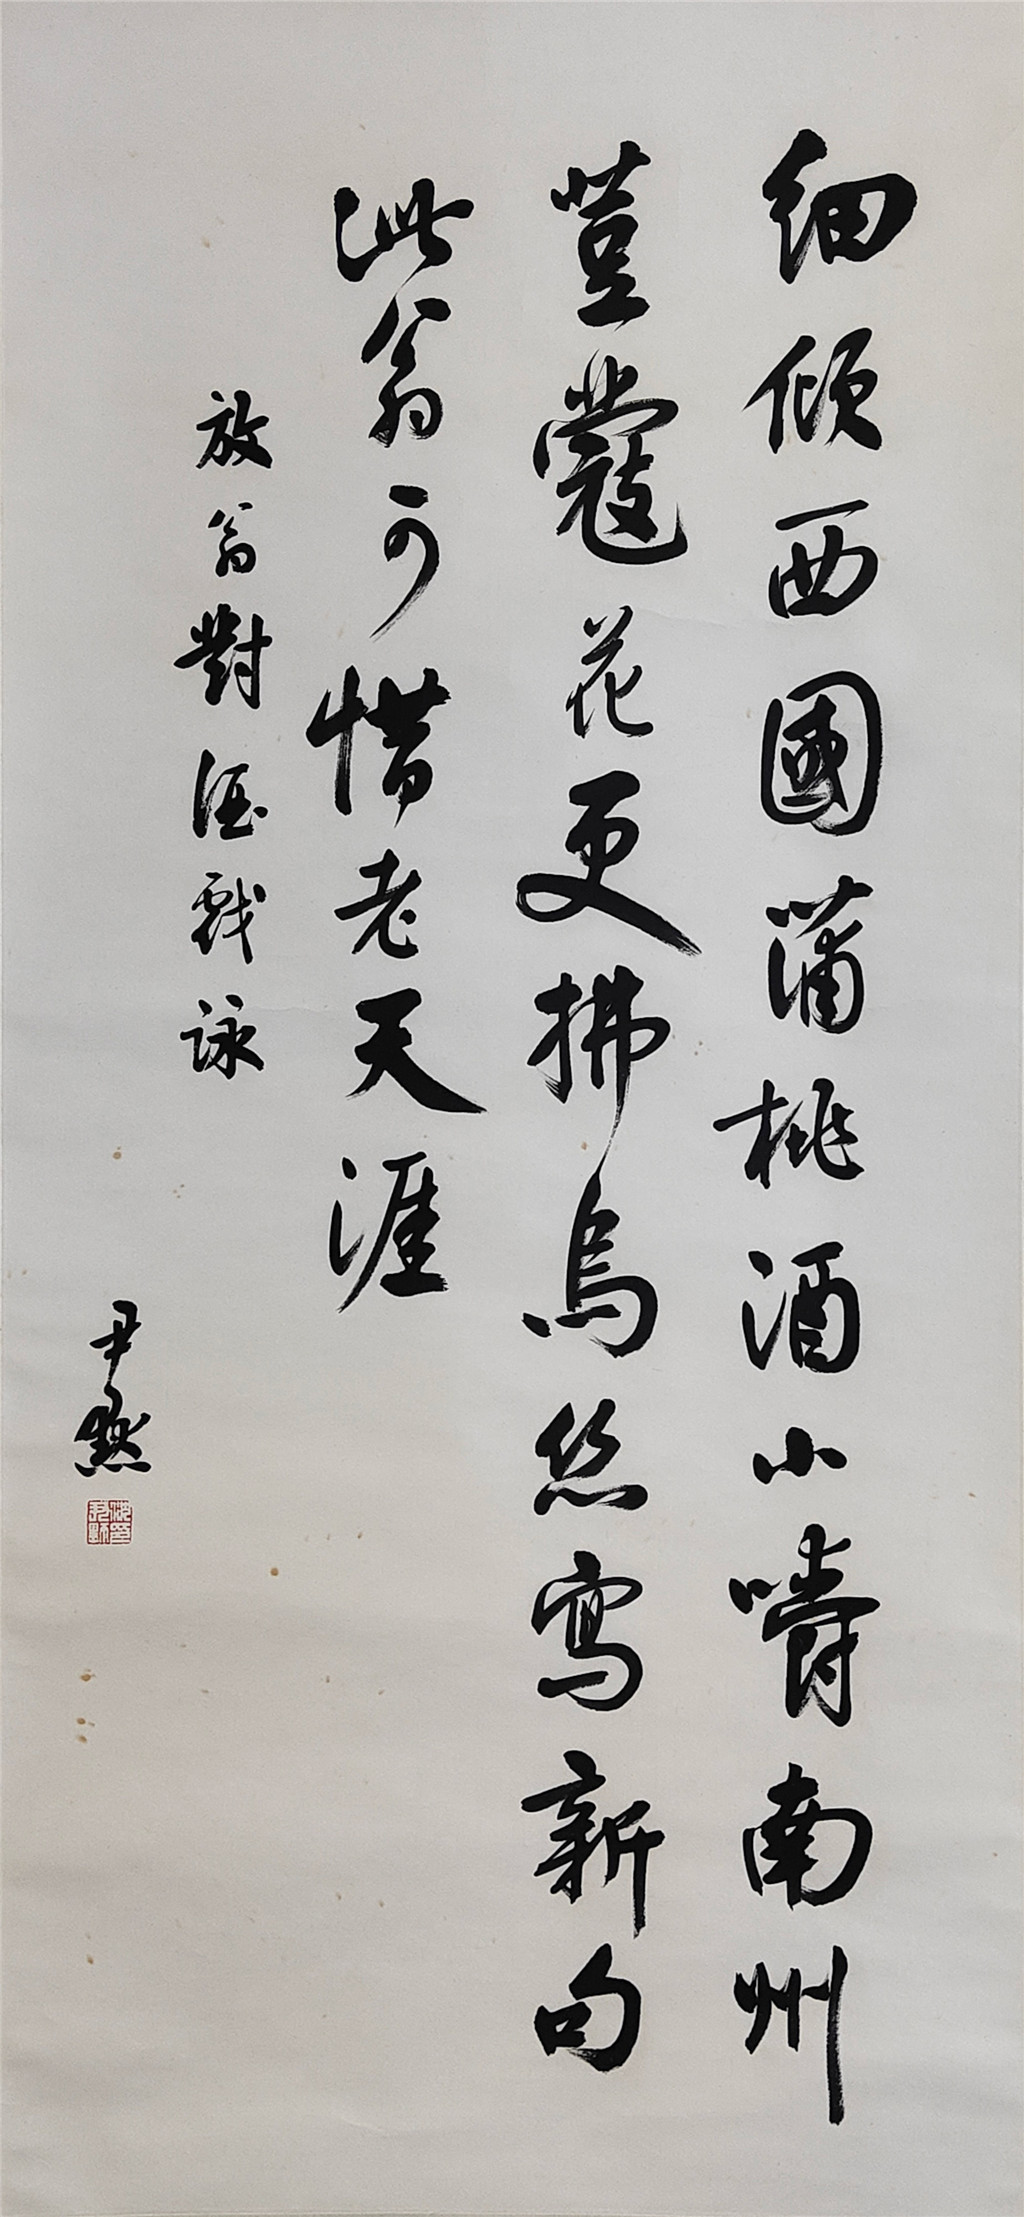 細傾西國蒲桃酒小嚼南州
荳蔻花更拂烏丝寫新句
此翁可惜老天涯
放翁對酒戲詠
尹默